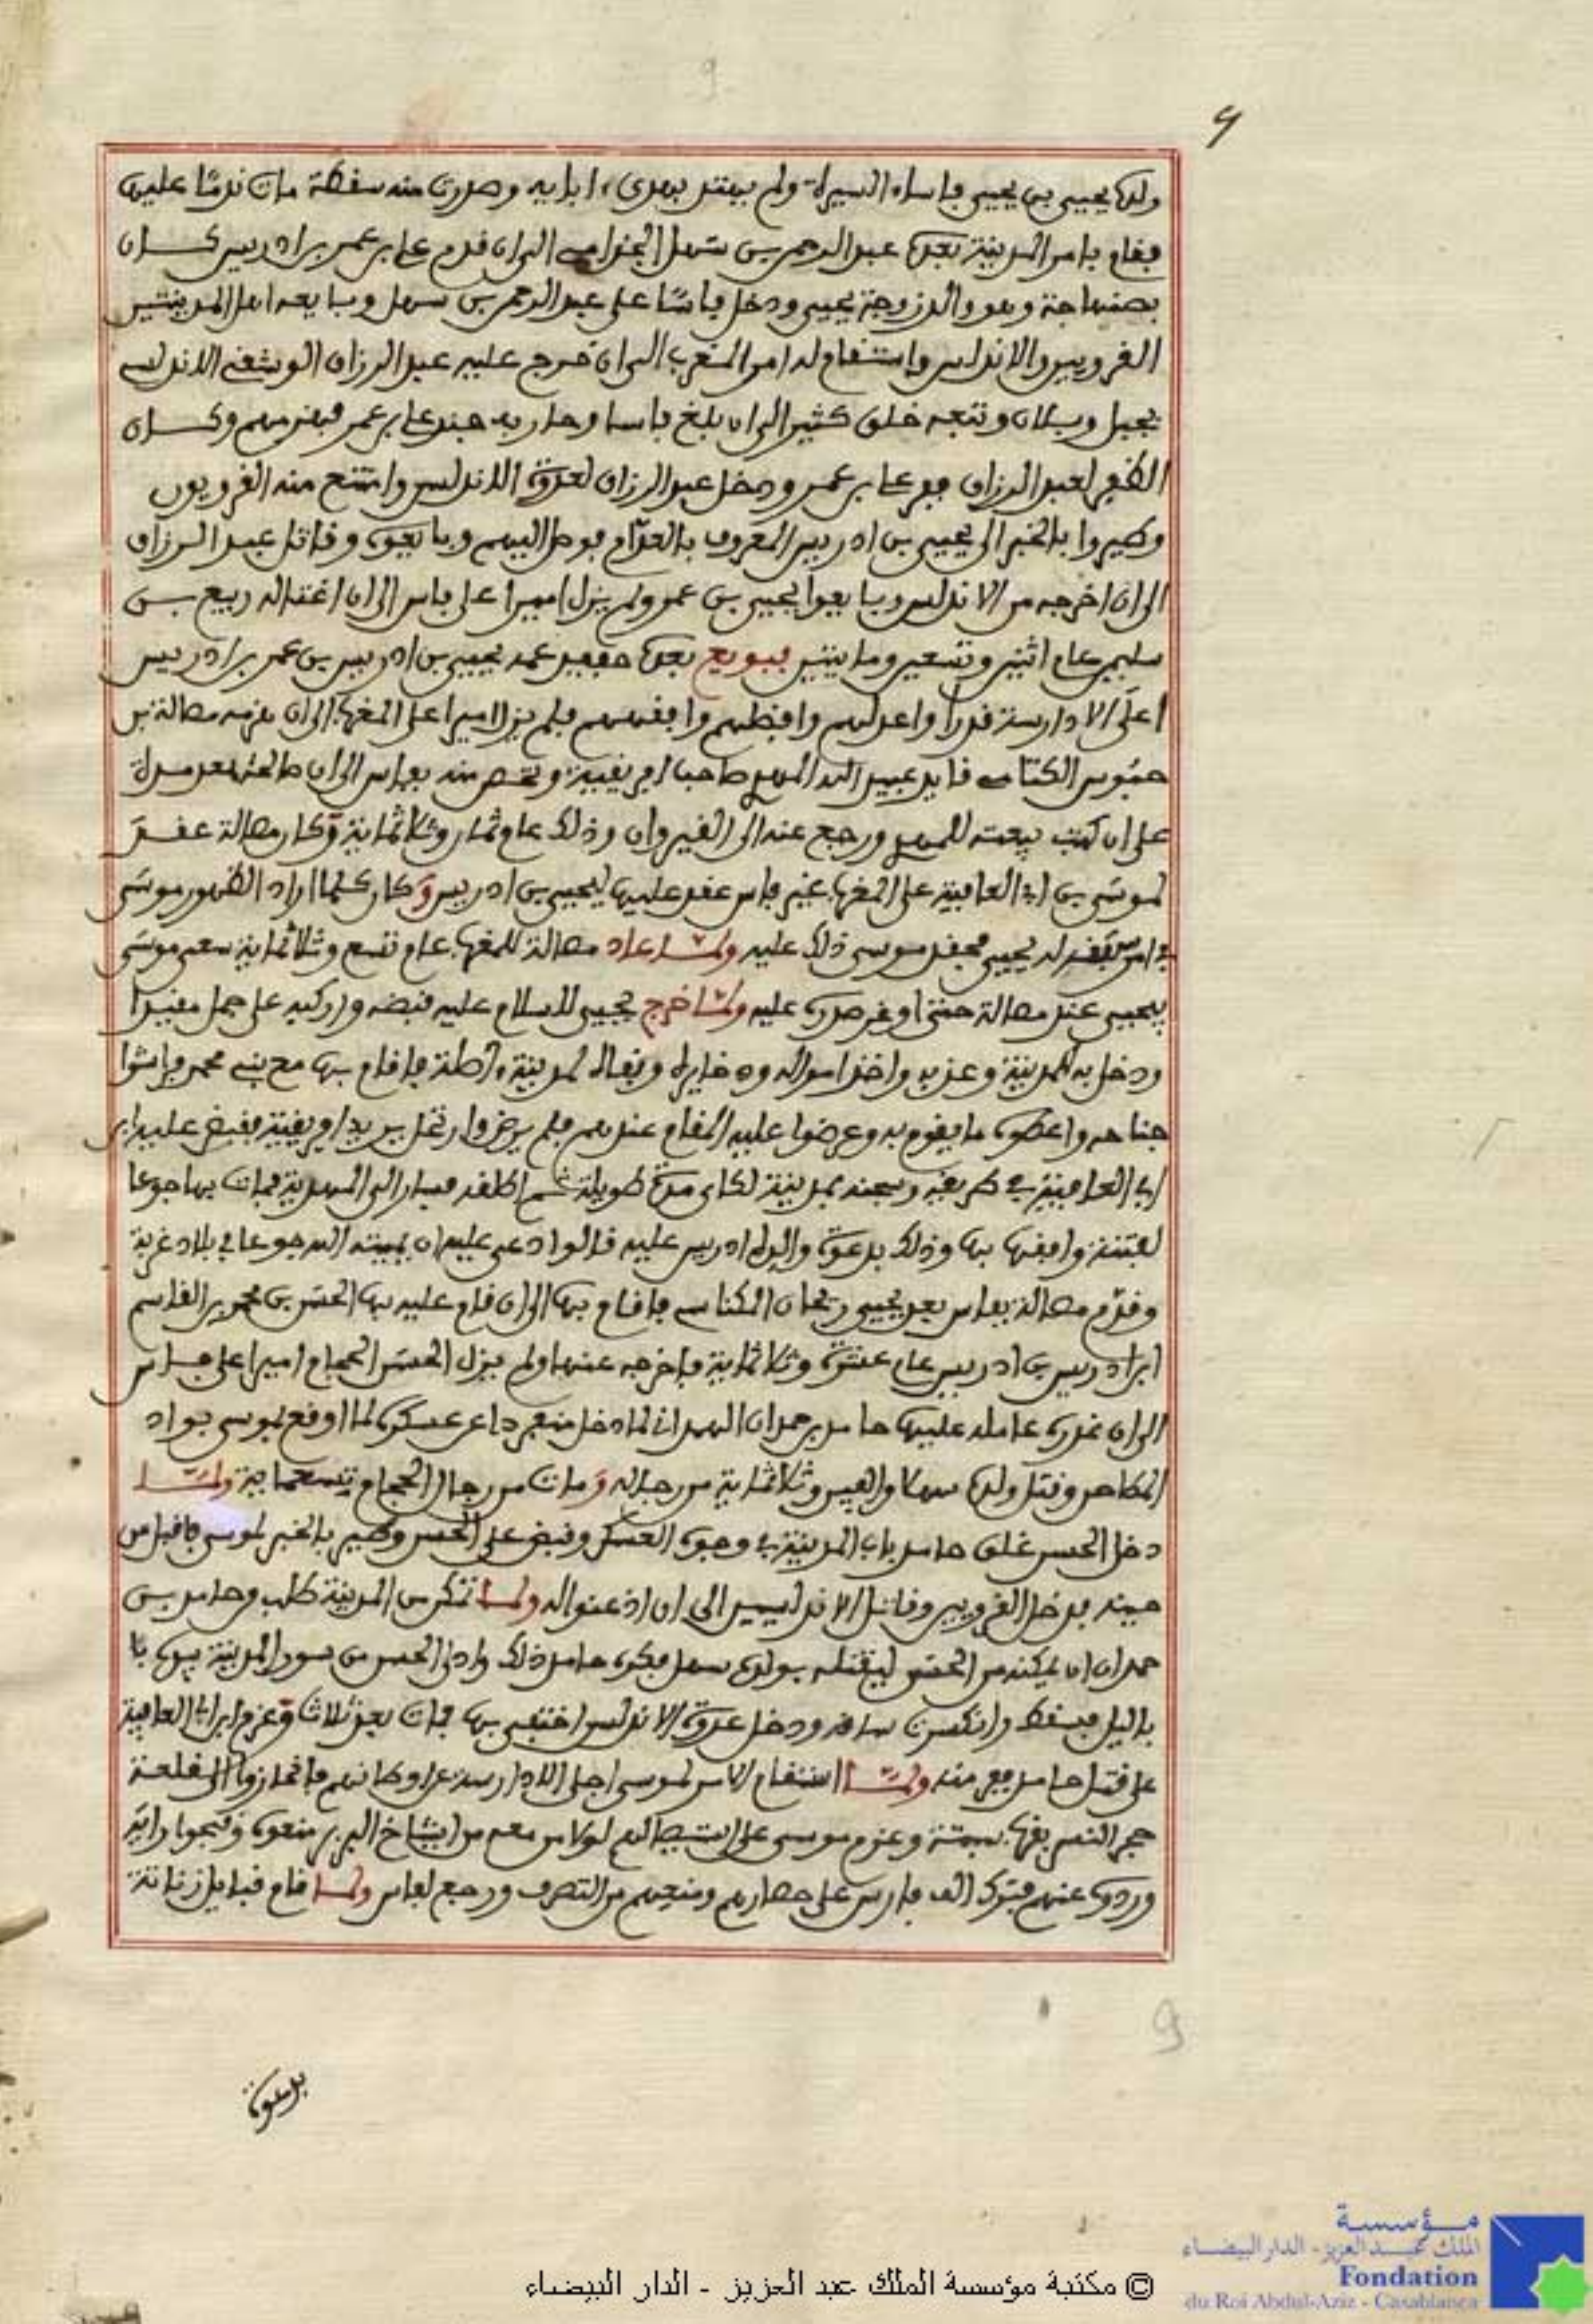 9
9
ولدها يحيى بن يحيى فاساء السيرة ولم يهتد بهدى ابايه وصدرت منه سفطة مات ندمًا عليها
فقام بامر المدينة بعده عبد الرحمن بن سهل الجذامي الى ان قدم علي بن عمر بن ادريس كان
بصنهاجة وهو والد زوجة يحيى ودخل فاسًا على عبد الرحمن بن سهل وبايعه اهل المدينتين
القرويين والاندلس واستقام له امر المغرب الى ان خرج عليه عبد الرزاق الويشقي الاندلسي
بجبل وبلان وتبعه خلق كثير الى ان بلغ فاسا وحاربه جند علي بن عمر فهزمهم وكان
الظفر لعبد الرزاق ففر علي بن عمر ودخل عبد الرزاق لعدوة الاندلس وامتنع منه القرويون
وطيروا بالخبر الى يحيى بن ادريس المعروف بالعدّام فوصل اليهم وبايعوه وقاتل عبد الرزاق
الى ان اخرجه من الاندلس وبايعوا ليحيى بن عمر ولم يزل اميرا على فاس الى ان اغتاله ربيع بن
سليمن عام اثنين وتسعين وماينتين فبويع بعده حفيد عمه يحيى بن ادريس بن عمر بن ادريس
اعلى الادارسة قدرا واعدلهم وافضلهم وافقههم فلم يزل اميرا على المغرب الى ان هزمه مصالة بن
حبوس الكتامي قايد عبيد الله المهدي صاحب افريقية وتحصن منه بفاس الى ان صالحه بعد مدة
على ان كتب بيعته للمهدي ورجع عنه الى القيروان وذلك عام ثمان وثلاثماية وكان مصالة عقد
لموسى بن ابي العافية على المغرب غير فاس عقد عليها ليحيى بن ادريس وكان كلما اراد الظهور موسى
في امر يقهره يحيى فحقد موسى ذلك عليه ولما عاد مصالة للمغرب عام تسع وثلاثماية سعى موسى
بيحيى عند مصالة حتى اوغر صدره عليه ولما خرج يحيى للسلام عليه قبضه واركبه على جمل مقيدا
ودخل به المدينة وعذبه واخذ امواله وذخايره ونفاه لمدينة اصلة فاقام بها مع بني محمد فراشوا
جناحه واعطوه ما يقوم به وعرضوا عليه المقام عندهم فلم يرض وارتحل يريد افريقية فقبض عليه ابن
ابي العافية في طريقه وسجنه بمدينة لكاي مدة طويلة ثم اطلقه فسار الى المهدية فمات بها جوعا
لفتنة وافقها بها وذلك بدعوة والده ادريس عليه قالوا دعى عليه ان يميته الله جوعا في بلاد غربة
وقدّم مصالة بفاس بعد يحيى ريحان المكناسي فاقام بها الى ان قام عليه بها الحسن بن محمد بن القاسم
ابن ادريس بن ادريس عام عشرة وثلاثماية فاخرجه عنها ولم يزل الحسن الحجام اميرا على فاس
الى ان غدره عامله عليها حامد بن حمدان الهمداني لما دخل منفردا عن عسكره لما اوقع بموسى بواد
المطاحن وقتل ولده سهلا والفين وثلاثماية من رجاله ومات من رجال الحجام تسعماية ولما
دخل الحسن غلق حامد باب المدينة في وجوه العسكر وقبض على الحسن وطير بالخبر لموسى فاقبل من
حينه فدخل القرويين وقاتل الاندلسيين الى ان اذعنوا له ولما تمكن من المدينة طلب حامد بن
حمدان ان يمكنه من الحسن ليقتله بولده سهل فكره حامد ذلك وادلى الحسن من سور المدينة
باليل فسقط وانكسرت ساقه ودخل عدوة الاندلس اختفى بها فمات بعد ثلاث وعزم ابن ابي العافية
على قتل حامد ففر منه ولما استقام الامر لموسى اجلى الادارسة عن اوطانهم فانحازوا الى قلعة
حجر النسر بقرب سبتة وعزم موسى على استيصالهم لولا من معه من اشياخ البربر منعوه وقبحوا رايه
وردوه عنهم فترك الف فارس على حصارهم ومنعهم من التصرف ورجع لفاس ولما قام قبايل زناتة
9
بدعوة
مؤسسة
الملك عبد العزيز - الدار البيضاء
Fondation
du Roi Abdul-Aziz - Casablanca
© مكتبة مؤسسة الملك عبد العزيز - الدار البيضاء